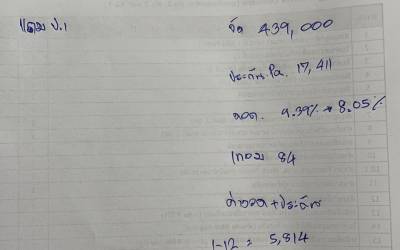 แถม ป.1
จัด 439,000
ประกัน Pa. 17,411
ดอก. 9.39% → 8.05%
เทอม 84
ค่างวด + ประกัน
1-12 = 5,814